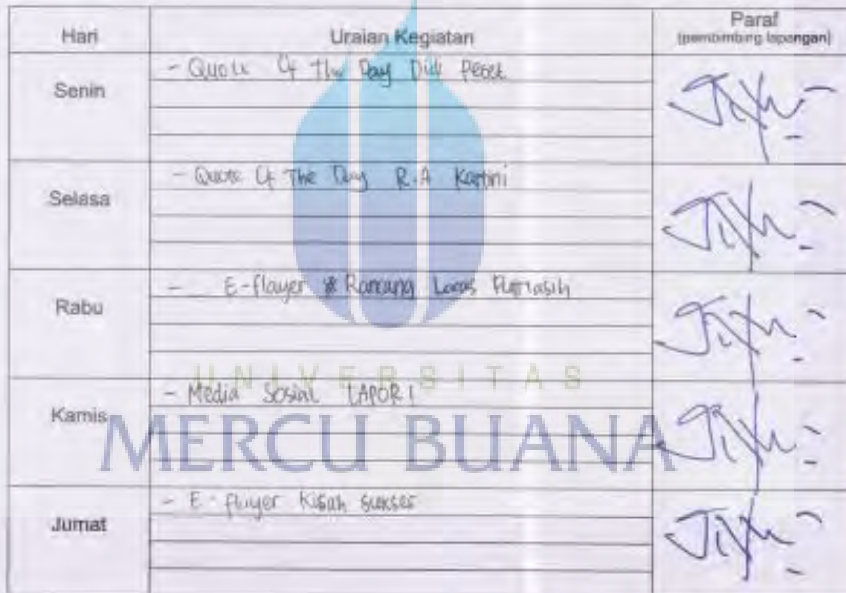 Hari Uraian Kegiatan Paraf
(pembimbing lapangan)
Senin - Quote Of The Day
Selasa - Quote Of The Day R.A Kartini
Rabu - E-flayer Rancang
Kamis - Media Sosial LAPOR!
Jumat - E-flayer Kisah Sukses
UNIVERSITAS
MERCU BUANA